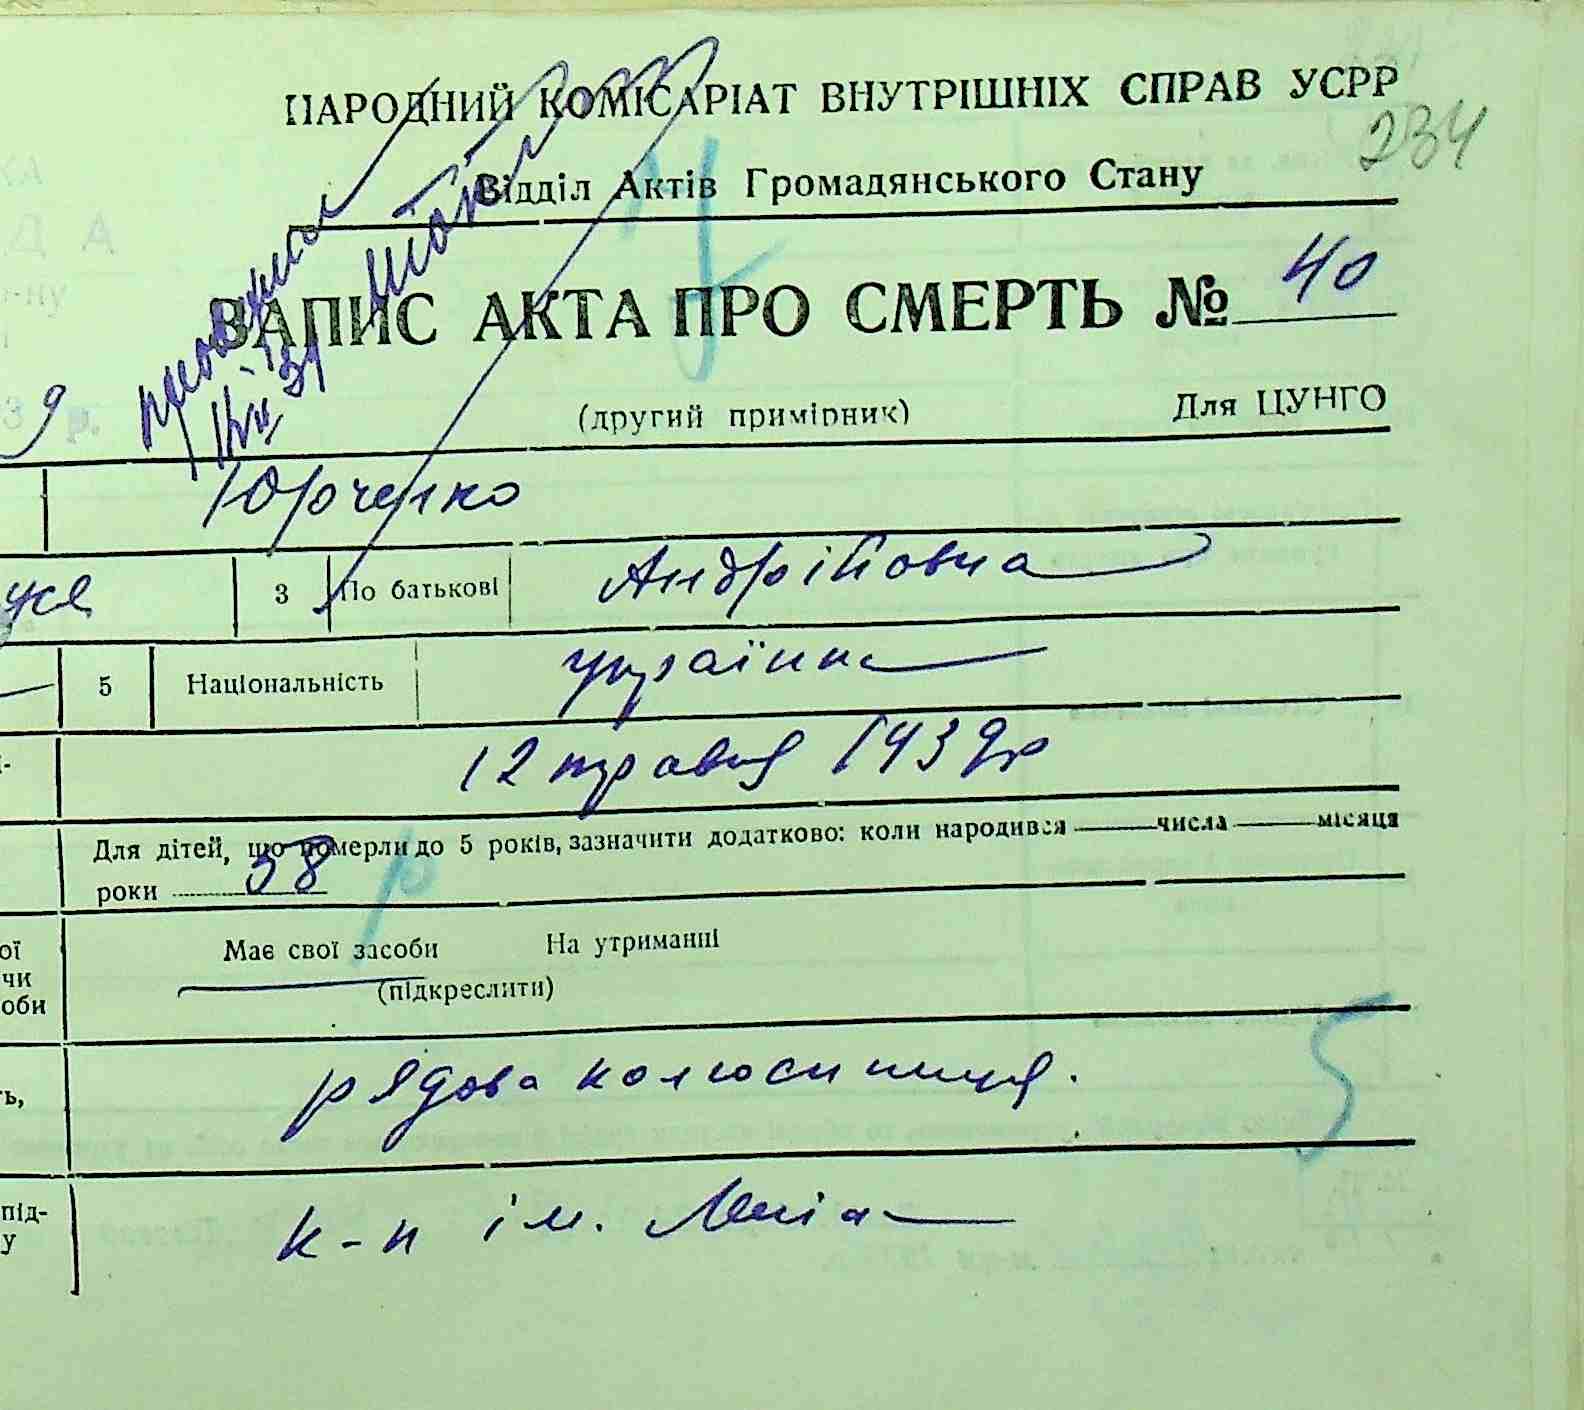 НАРОДНИЙ КОМІСАРІАТ ВНУТРІШНІХ СПРАВ УСРР
234
Відділ Актів Громадянського Стану
ЗАПИС АКТА ПРО СМЕРТЬ № 40
(другий примірник) Для ЦУНГО
9 р.
Юрченко
3 По батькові Андріївна
5 Національність українка
12 травня 1939 р
Для дітей, що померли до 5 років, зазначити додатково: коли народився числа місяця
роки 58
ої Має свої засоби На утриманні
чи (підкреслити)
оби
рядова колгоспниця.
ть,
к-п ім.
під-
у
5